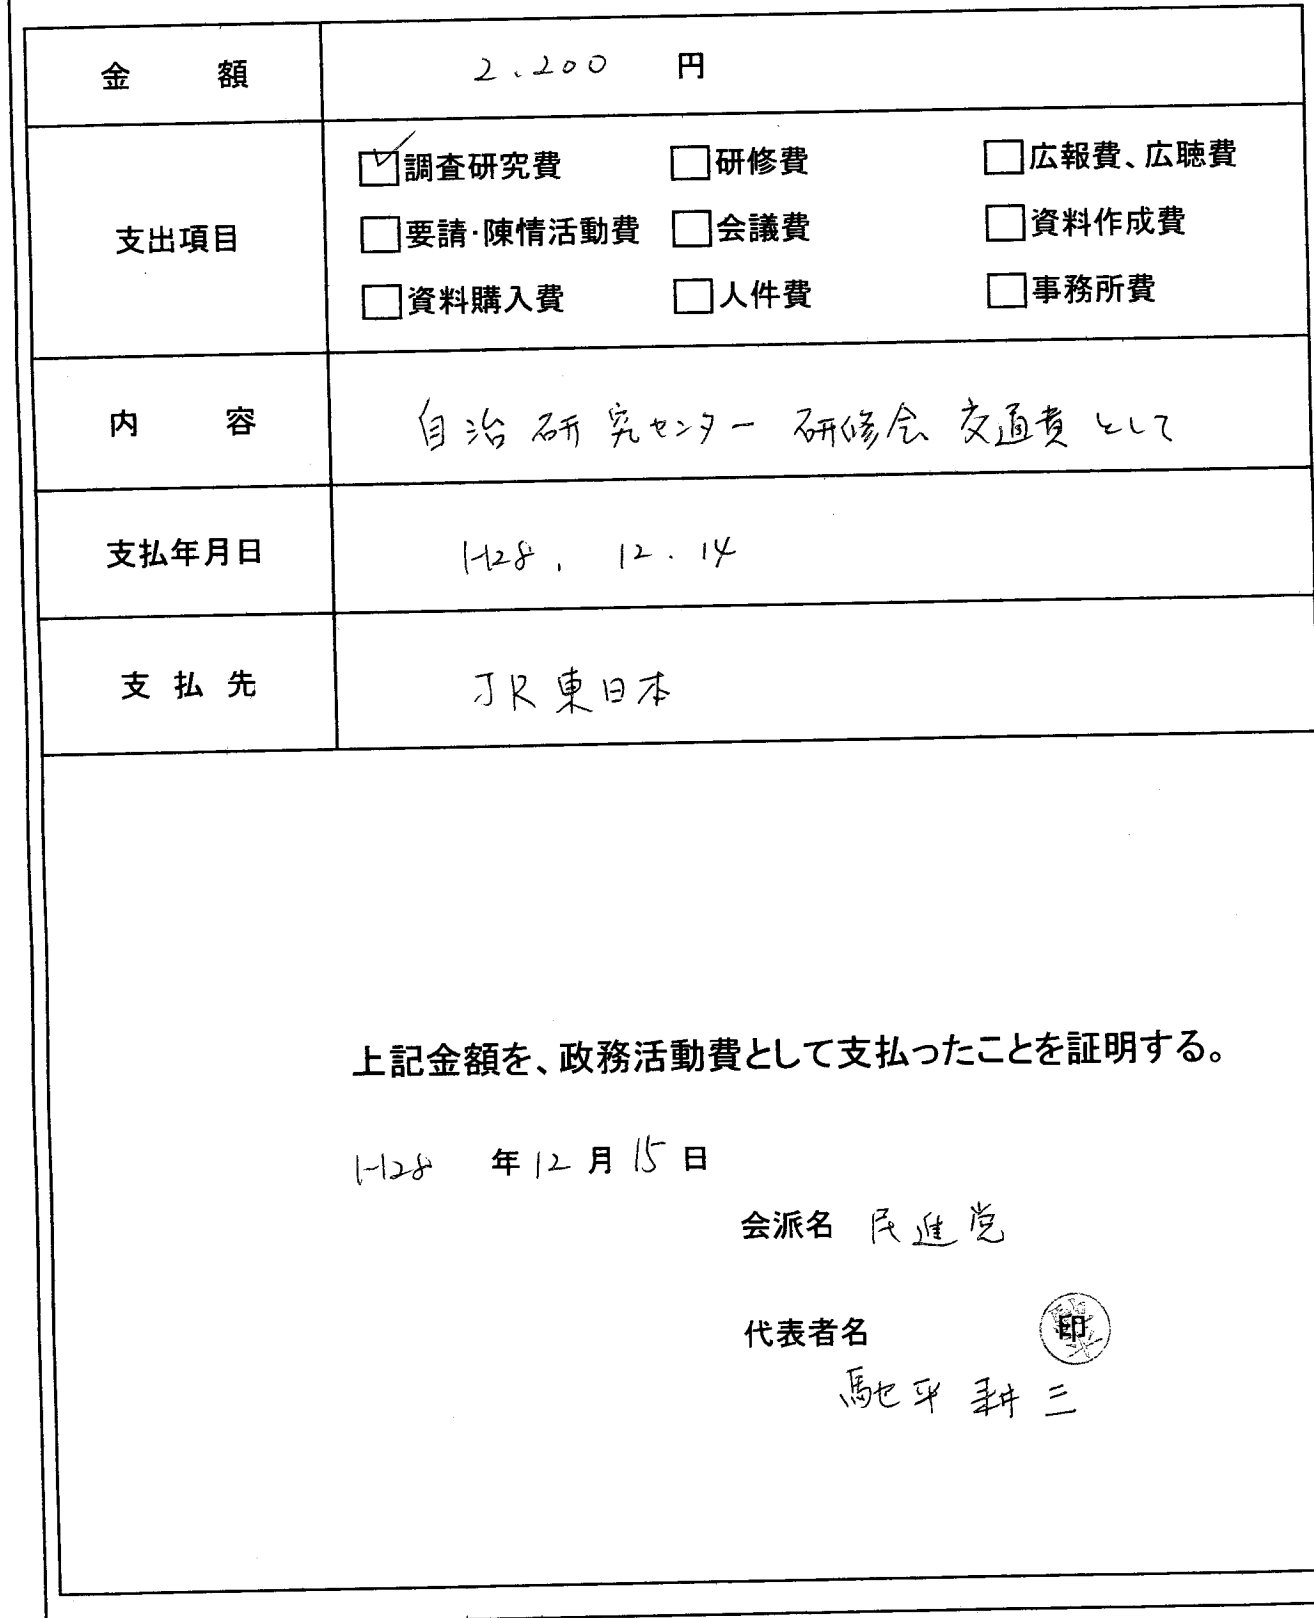 金 額 2.200 円
☑調査研究費 □研修費 □広報費、広聴費
支出項目 □要請・陳情活動費 □会議費 □資料作成費
□資料購入費 □人件費 □事務所費
内 容 自治研究センター 研修会 交通費として
支払年月日 H28. 12. 14
支払先 JR東日本
上記金額を、政務活動費として支払ったことを証明する。
H28 年12月15日
会派名 民進党
代表者名 印
馳平 耕三